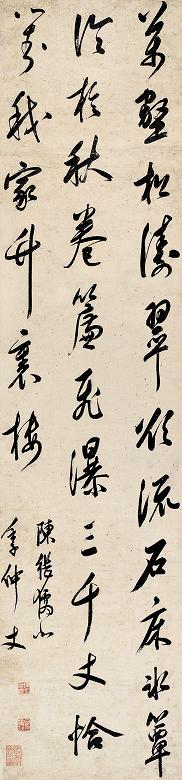 萬壑松濤翠欲流石床冰簟
冷於秋卷簾飛瀑三千丈恰
對我家竹裏樓
陳繼儒似
季仲丈